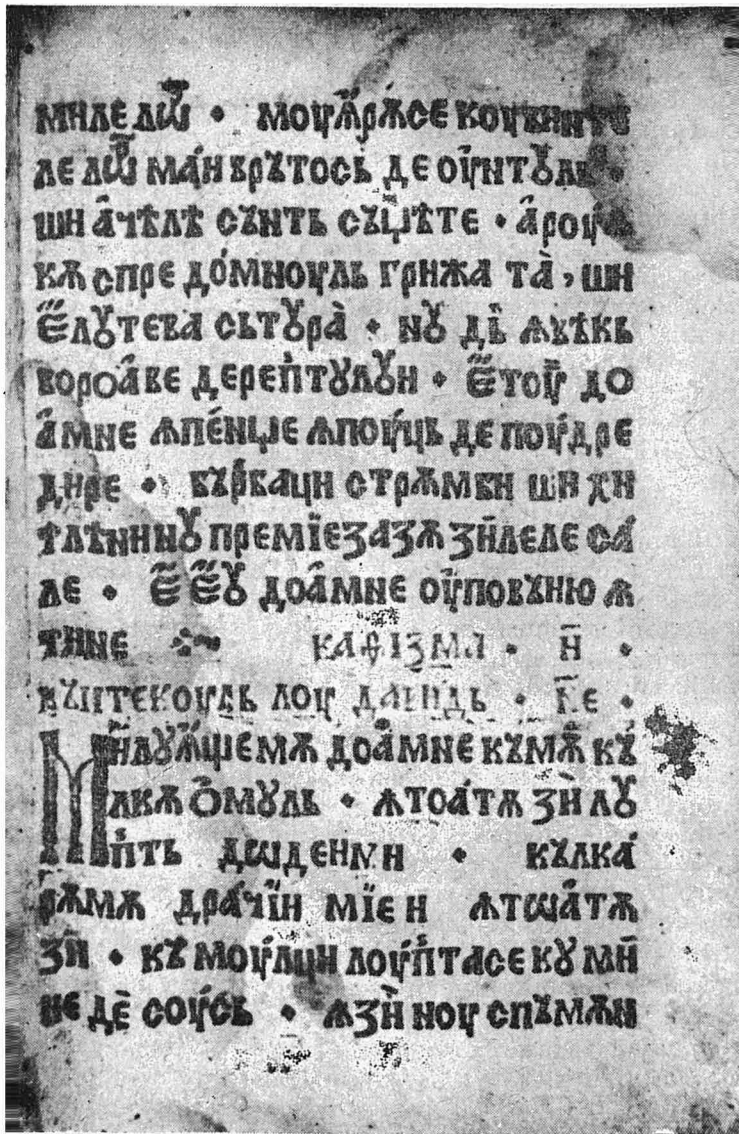 мнле лѡⷬ · моуⷤѧ́рѫсе коувните
ле лѡⷬ ма́н врꙋтось де оуⷩтꙋль ·
шн а́чѣлѣ сꙋнть сꙋцѣте · а́роуⷩ
кѫ спре до́мноуль грнжа та̀, шн
е́лꙋ тева сьтꙋра̀ · нꙋ дⷷ ѫвѣкь
вороа́ве дереп̾тꙋлꙋн · е́ тоуⷩ до
а́мне ѫпе́нџе ѫпоу́ць де поу́дре
днре · бꙋр̾вацн стрѫмбн шн хн
тлѣннꙋ преміезазѫ зи́леле са́
ле · е́ е́ꙋ доа́мне оу̾повꙋню ѫ
тнне каѳізма · н҃ ·
кꙋнтекоуль лоу давндь · н҃е ·
Мн́лꙋа́щемѫ доа́мне кꙋмѫ кꙋ́
лкѫ ѻ́мꙋль · ѫтоа́тѫ зн̀ лꙋ
п̾ть дѡденмн · кꙋлка́
рѫмѫ дра́чїн мїен ѫтѡа́тѫ
зн̀ · кꙋ моу́лцн лоуп̾тасе кꙋ мн̀
не дѐ соу́сь · ѫзн̀ ноу спꙋмѫн